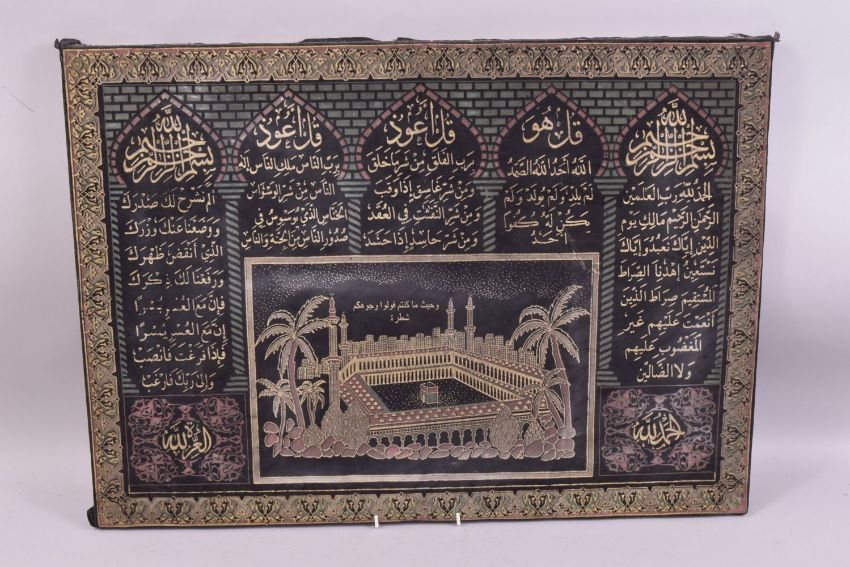 بسم الله الرحمن الرحيم
الحمد لله رب العلمين
الرحمن الرحيم مالك يوم
الدين إياك نعبد وإياك
نستعين إهدنا الصراط
المستقيم صراط الذين
أنعمت عليهم غير
المغضوب عليهم
ولا الضالين
الحمد لله
قل هو
الله أحد الله الصمد
لم يلد ولم يولد ولم
يكن له كفوا
أحد
قل أعوذ
برب الفلق من شر ما خلق
ومن شر غاسق إذا وقب
ومن شر النفثت في العقد
ومن شر حاسد إذا حسد
قل أعوذ
برب الناس ملك الناس إله
الناس من شر الوسواس
الخناس الذي يوسوس في
صدور الناس من الجنة والناس
بسم الله الرحمن الرحيم
ألم نشرح لك صدرك
ووضعنا عنك وزرك
الذي أنقض ظهرك
ورفعنا لك ذكرك
فإن مع العسر يسرا
إن مع العسر يسرا
فإذا فرغت فانصب
وإلى ربك فارغب
العزة لله
وحيث ما كنتم فولوا وجوهكم
شطرة